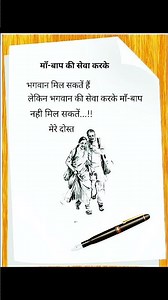 माँ-बाप की सेवा करके
भगवान मिल सकतें हैं
लेकिन भगवान की सेवा करके माँ-बाप
नही मिल सकतें...!!
मेरे दोस्त